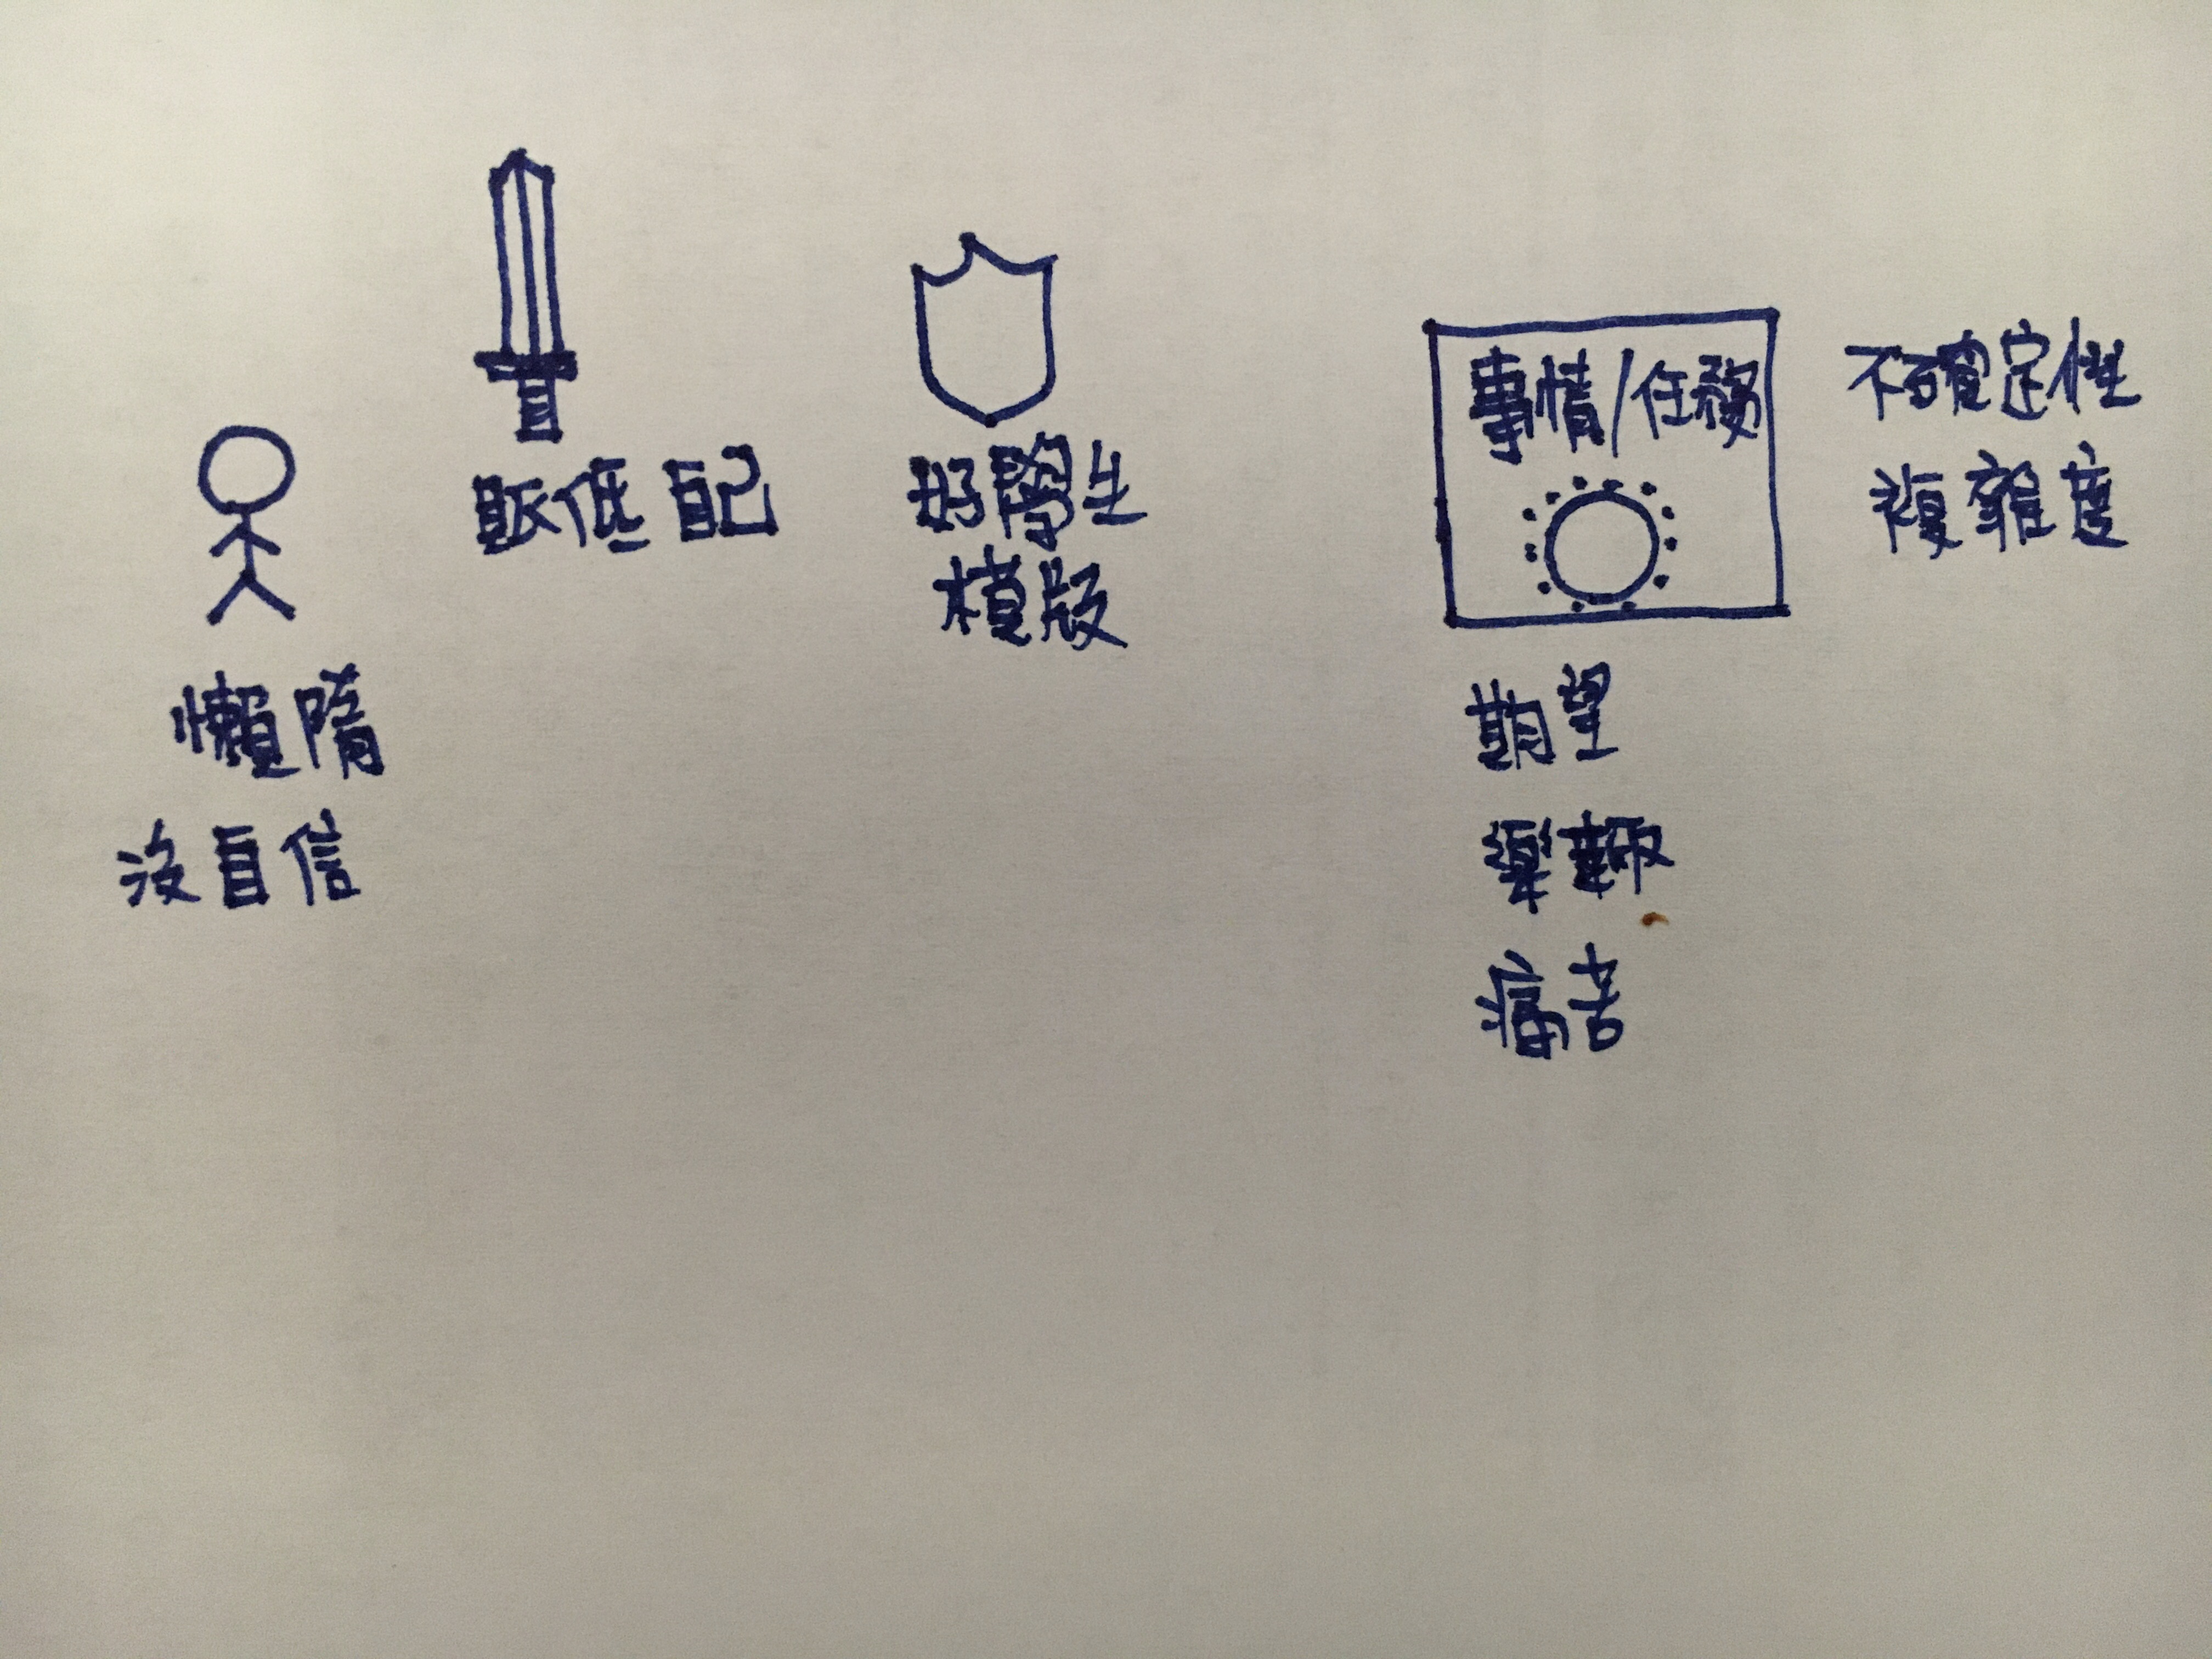 懶隋
沒自信
貶低自己
好學生
模版
事情/任務
不確定性
複雜度
期望
樂趣
痛苦